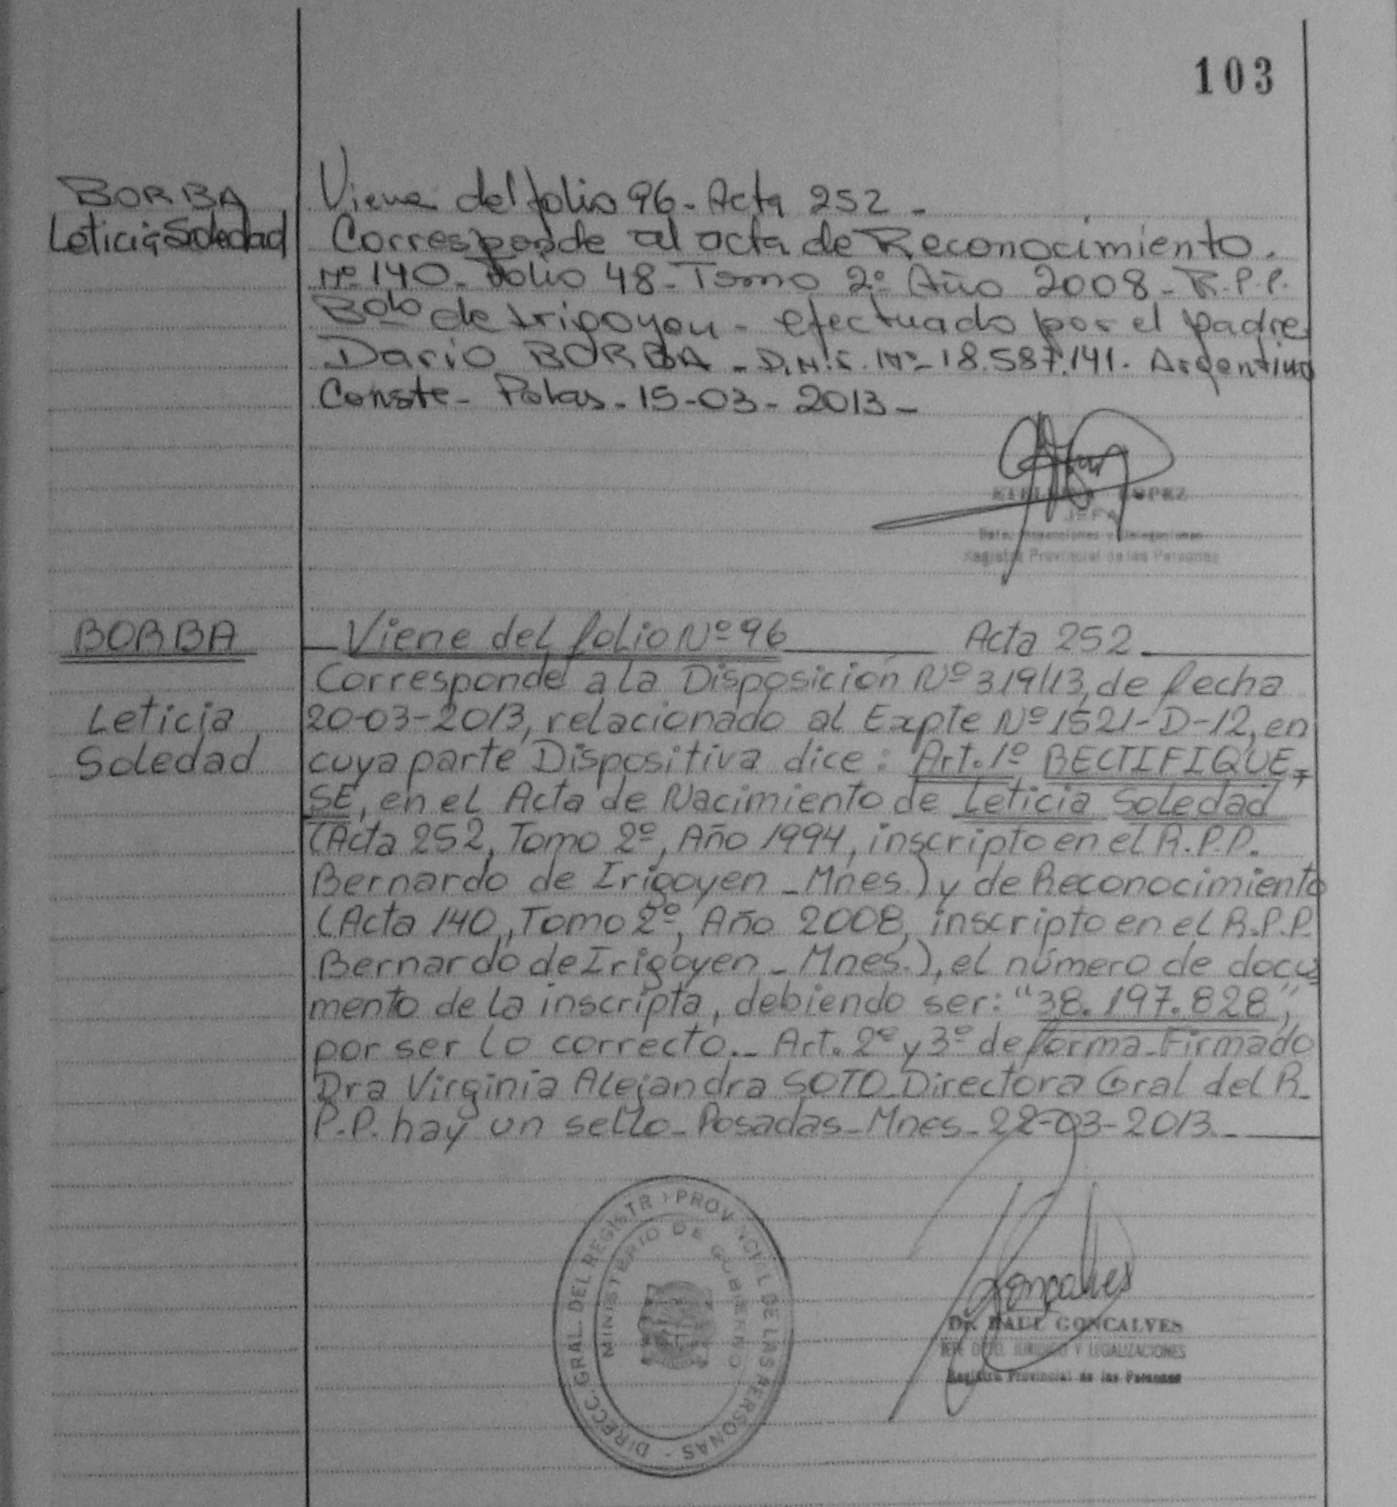 103
BORBA
Leticia Soledad
Viene del folio 96 - Acta 252 -
Corresponde al acta de Reconocimiento.
Nº 140 - Folio 48 - Tomo 2º Año 2008 - R.P.P.
Bdo de Irigoyen - efectuado por el padre
Dario BORBA - D.N.I. Nº - 18.587.141. Argentino
Conste - Pdas - 15-03-2013 -
LOPEZ
JEFA
Registro Provincial de las Personas
BORBA
Leticia
Soledad
Viene del folio Nº 96 Acta 252
Corresponde a la Disposición Nº 319/13, de fecha
20-03-2013, relacionado al Expte Nº 1521-D-12, en
cuya parte Dispositiva dice: Art. 1º RECTIFIQUE-
SE, en el Acta de Nacimiento de Leticia Soledad
(Acta 252, Tomo 2º, Año 1994, inscripto en el R.P.P.
Bernardo de Irigoyen - Mnes.) y de Reconocimiento
(Acta 140, Tomo 2º, Año 2008, inscripto en el R.P.P.
Bernardo de Irigoyen - Mnes.), el número de docu
mento de la inscripta, debiendo ser: "38.197.828",
por ser lo correcto._ Art. 2º y 3º de forma - Firmado
Dra Virginia Alejandra SOTO - Directora Gral del R.
P.P. hay un sello - Posadas - Mnes - 22-03-2013.
DIRECC. GRAL. DEL REGISTRO PROVINCIAL DE LAS PERSONAS -
MINISTERIO DE GOBIERNO
Goncalves
Dr. RAUL GONCALVES
JEFE DPTO. JURIDICO Y LEGALIZACIONES
Registro Provincial de las Personas